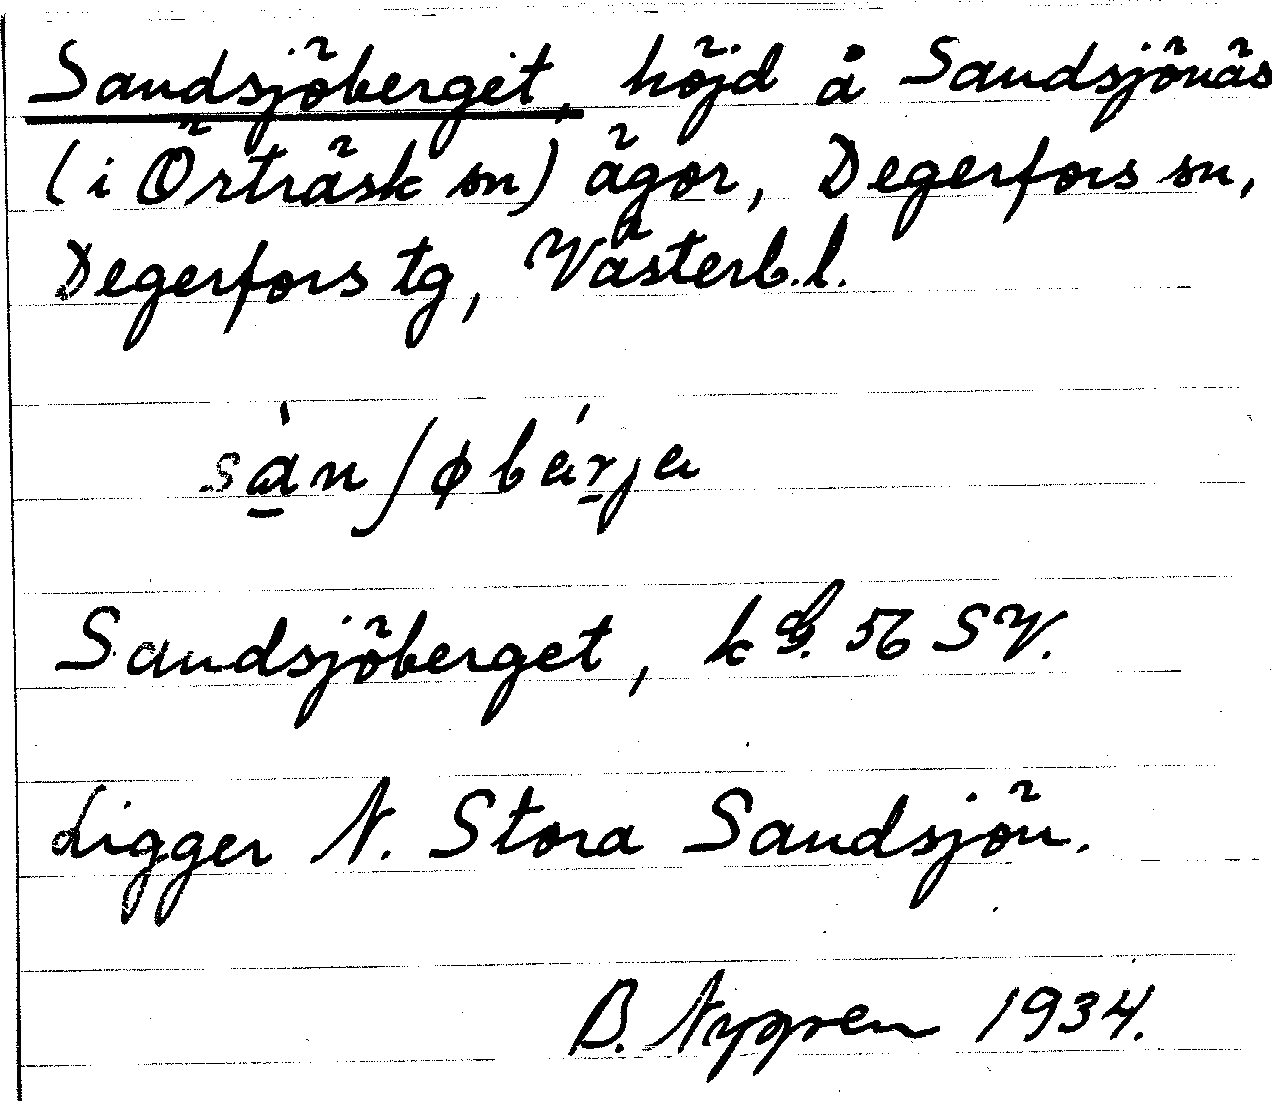 Sandsjöberget, höjd å Sandsjönäs
(i Örträsk sn) ägor, Degerfors sn,
Degerfors tg, Västerb. l.
sàn∫øbárja
Sandsjöberget, k G. 56 SV.
Ligger N. Stora Sandsjön.
B. Nygren 1934.